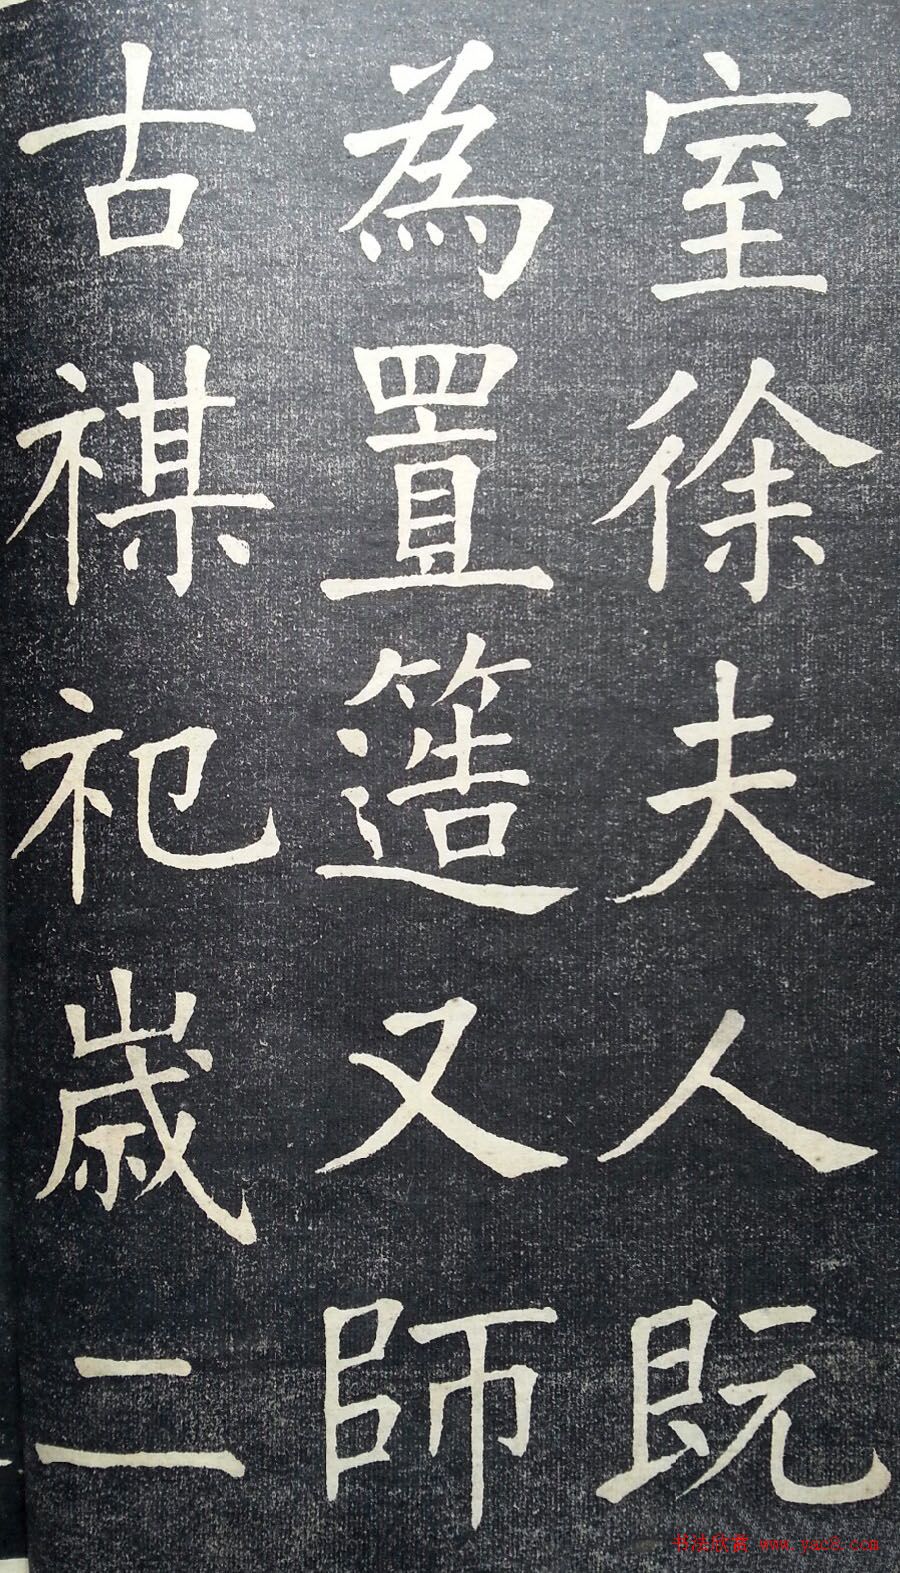 室徐夫人既
為置簉又師
古禖祀歲二
书法欣赏 www.yac8.com